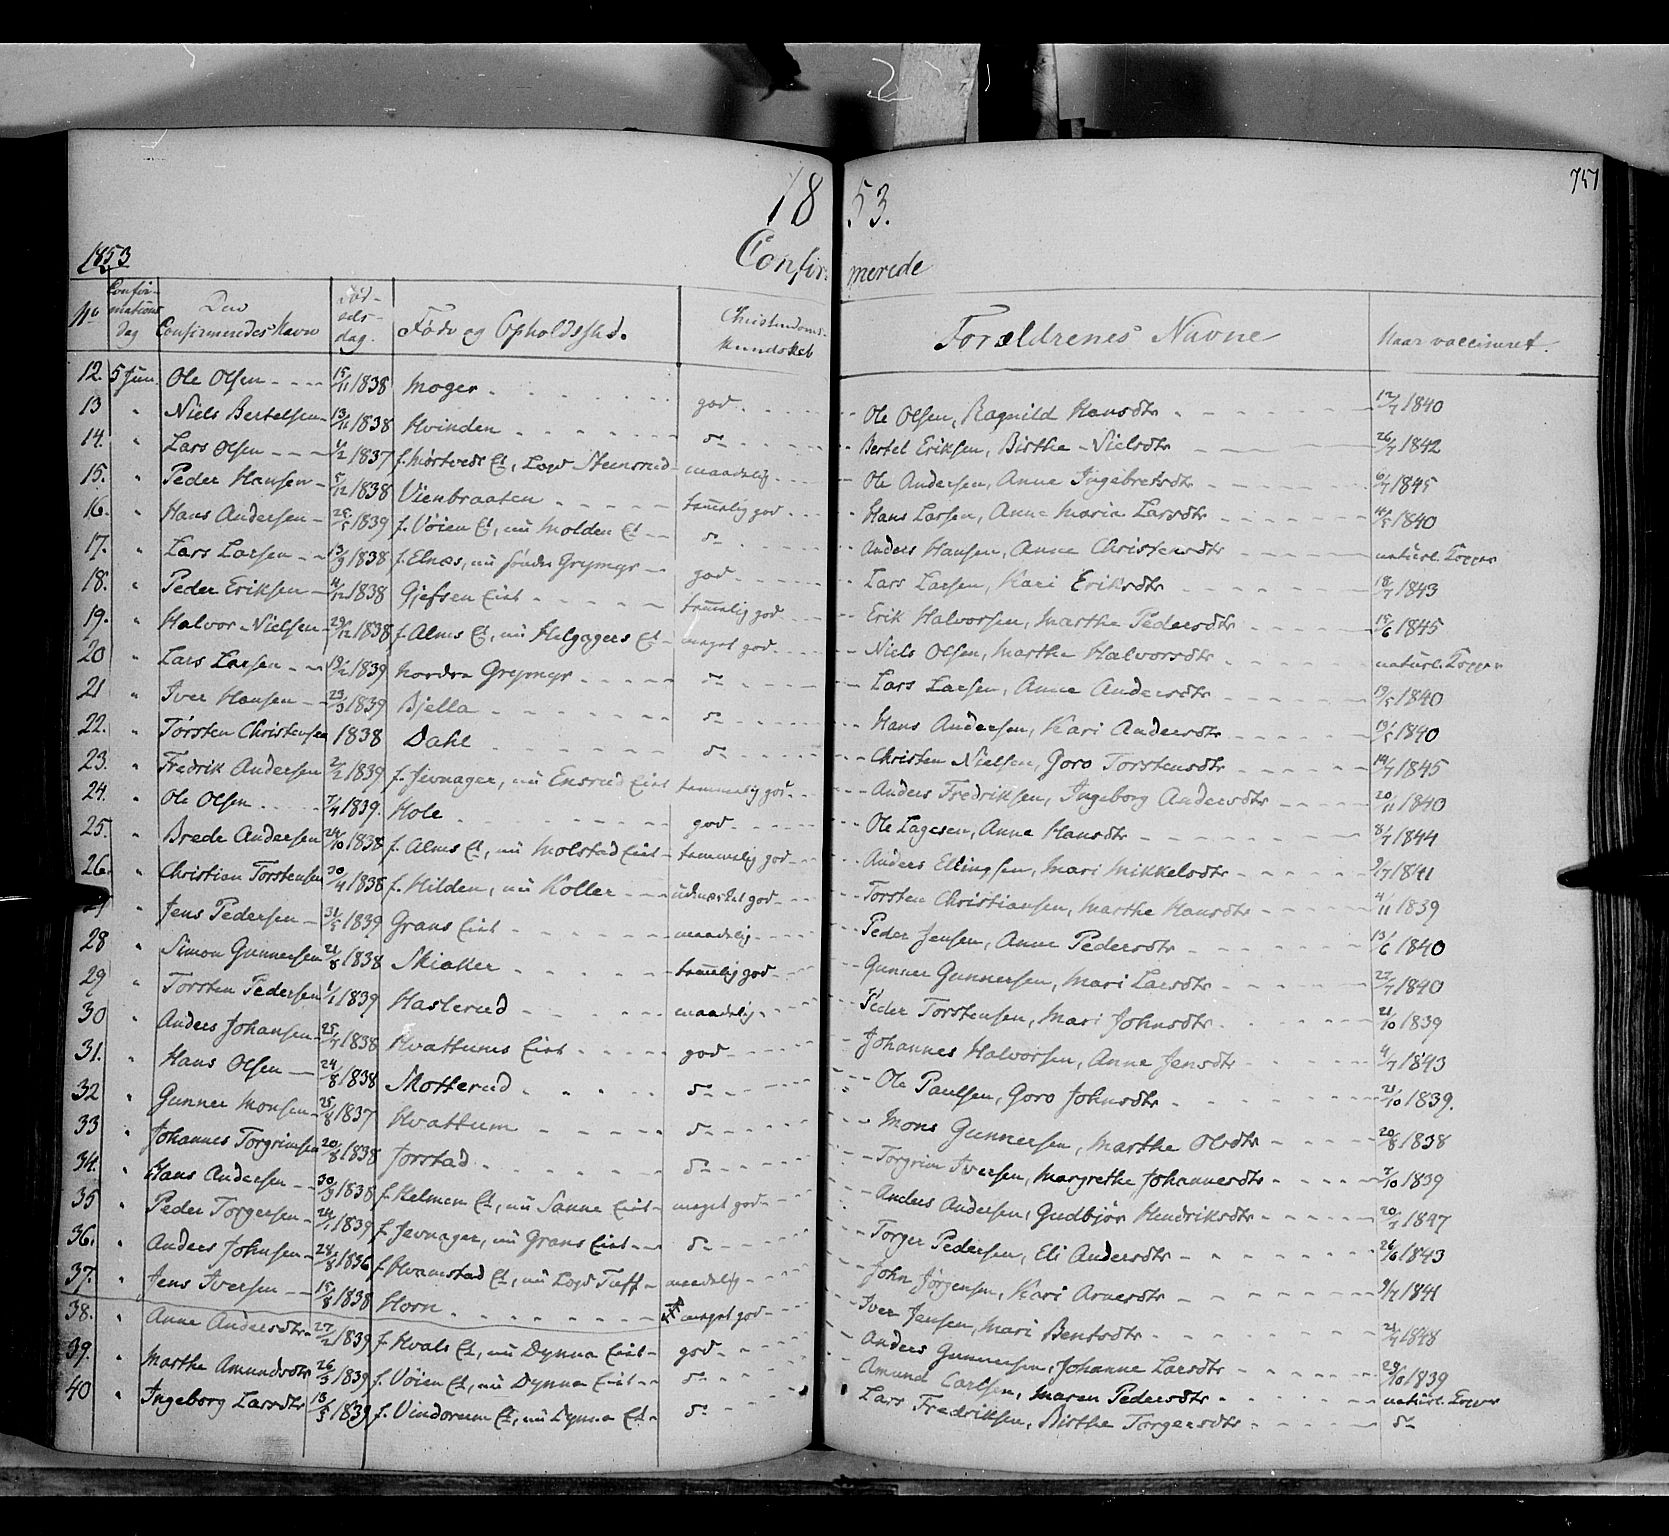 751
18 53.
1853
Confir- merede
No Confir-mations Dag Den Confirmeredes Navn Fød-sels-dag. Føde og Opholdssted. Christendoms-Kundskab Forældrenes Navne Naar vaccineret.
12. 5 Juni Ole Olsen 15/11 1838 Moger god Ole Olsen, Ragnild Hansdtr 12/7 1840
13 " Niels Bertelsen 13/11 1838 Kvinden do Bertel Eriksen, Birthe Nielsdtr 26/7 1842
14. " Lars Olsen 1/2 1837 f. Mørtvedt Et, Logd Stensrud maadelig Ole Andersen, Anne Ingebretsdtr 6/7 1845
15. " Peder Hansen 5/12 1838 Vienbraaten temelig god Hans Larsen, Anne Maria Larsdtr 11/5 1840
16. " Hans Andersen 28/5 1839 f. Vøien Et, nu Molden Et do Anders Hansen, Anne Christensdtr naturl. Kopper
17. " Lars Larsen 13/9 1838 f. Elnæs, nu søndre Grymyr god Lars Larsen, Kari Eriksdtr 18/7 1843
18. " Peder Eriksen 11/12 1838 Gjefsen Eiet temelig god Erik Halvorsen, Marthe Pedersdtr 15/6 1845
19. " Halvor Nielsen 29/12 1838 f. Alms Et, nu Helgagers Et meget god Niels Olsen, Marthe Halvorsdtr naturl. Kopper
20 " Lars Larsen 19/1 1839 Nordre Grymyr do Lars Larsen, Anne Andersdtr 19/5 1840
21 " Iver Hansen 23/3 1839 Bjella do Hans Andersen, Kari Andersdtr 19/5 1840
22. " Torsten Christensen 1838 Dahl do Christen Nielsen, Goro Torstensdtr 19/7 1845
23. " Fredrik Andersen 2/2 1839 f. Jevnager, nu Ensrud Eiet temmelig god Anders Fredriksen, Ingeborg Andersdtr 20/11 1840
24. " Ole Olsen 7/4 1839. Hole god Ole Lagesen, Anne Hansdtr 8/7 1844
25. " Brede Andersen 24/10 1838 f. Alms Et, nu Molstad Eiet temmelig god Anders Ellingsen, Mari Mikkelsdtr 9/7 1841
26. " Christian Torstensen 30/4 1838 f. Hilden, nu Koller udmærket god Torsten Christiansen, Marthe Hansdtr 4/11 1839
27 " Jens Pedersen 31/5 1839 Grans Eiet maadelig Peder Jensen, Anne Pedersdtr 13/6 1840
28 " Simon Gunnersen 21/8 1838 Skiaker temelig god Gunner Gunnersen, Mari Larsdtr 22/7 1840
29 " Torsten Pedersen 1/1 1839 Haslerud maadelig Peder Torstensen, Mari Johnsdtr 21/10 1839
30 " Anders Johansen 25/7 1838 Kvattums Eiet god Johannes Halvorsen, Anne Jensdtr 4/7 1843
31. " Hans Olsen 24/8 1838 Motterud do Ole Paulsen, Goro Johnsdtr 21/10 1839.
32 " Gunner Monsen 25/8 1837 Kvattum do Mons Gunnersen, Marthe Olsdtr 20/8 1838
33 " Johannes Torgrimsen 20/8 1838 Jorstad do Torgrim Iversen, Margrethe Johannesdtr 2/10 1839
34. " Hans Andersen 30/9 1838 f. Helmen Et, nu Sanne Eiet meget god Anders Andersen, Gudbjør Hendriksdtr 20/7 1847
35 " Peder Torgersen 24/1 1839 f. Jevnager, nu Grans Eiet do Torger Pedersen, Eli Andersdtr 26/6 1843
36. " Anders Johnsen 28/8 1836 f. Kvamstad Et, nu Logd Tuff maadelig John Jørgensen, Kari Arnesdtr 9/7 1841
37. " Jens Iversen 15/8 1838 Horn meget god Iver Jensen, Mari Bentsdtr 21/7 1848
38. " Anne Andersdtr 27/2 1839 f. Kvals Et, nu Dynna Eiet god Anders Gunnersen, Johanne Larsdtr 29/10 1839
39. " Marthe Amundsdtr 26/3 1839 f. Vøien Et, nu Dynna Eiet do Amund Carlsen, Maren Pedersdtr naturl. Kopper
40 " Ingeborg Larsdtr 13/3 1839 f. Vindorum Et, nu Dynna Et do Lars Fredriksen, Birthe Torgersdtr do